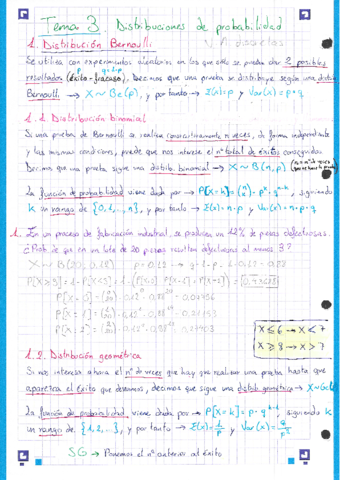 Tema 3. Distribuciones de probabilidad
V.A. discretas
1. Distribución Bernoulli
Se utiliza con experimentos aleatorios en los que sólo se pueden dar 2 posibles
resultados (éxito - fracaso). Decimos que una prueba se distribuye según una distrib
Bernoulli. → X~Be(p), y por tanto → E(x)=p y Var(x)=p·q
1.1 Distribución binomial
Si una prueba de Bernoulli se realiza consecutivamente n veces, de forma independiente
y las mismas condicions, puede que nos interese el nº total de éxitos conseguidos.
Decimos que una prueba sigue una distrib. binomial → X~B(n,p)
La función de probabilidad viene dada por → P[X=k]=(n k)·p^k·q^n-k, siguiendo
k un rango de {0,1,...,n}, y por tanto → E(x)=n·p y Var(x)=n·p·q
1. En un proceso de fabricación industrial, se producen un 12% de piezas defectuosas.
¿Prob de que en un lote de 20 piezas resulten defectuosas al menos 3?
X~B(20, 0.12) p=0.12 → q=1-p=1-0.12=0.88
P[X≥3]=1-P[X<3]=1-(P[X=0]+P[X=1]+P[X=2])=
P[X=0]=(20 0)·0.12^0·0.88^20=
P[X=1]=(20 1)·0.12^1·0.88^19=
P[X=2]=(20 2)·0.12^2·0.88^18=
X≤6 → X<7
X≥8 → X>7
1.2. Distribución geométrica
Si nos interesa ahora el nº de veces que hay que realizar una prueba hasta que
aparezca el éxito que deseamos, decimos que sigue una distrib. geométrica → X~G(
La función de probabilidad, viene dada por → P[X=k]=p·q^k-1, siguiendo k
un rango de {1,2,...}, y por tanto → E(x)=1/p y Var(x)=q/p²
→ Ponemos el nº anterior al éxito